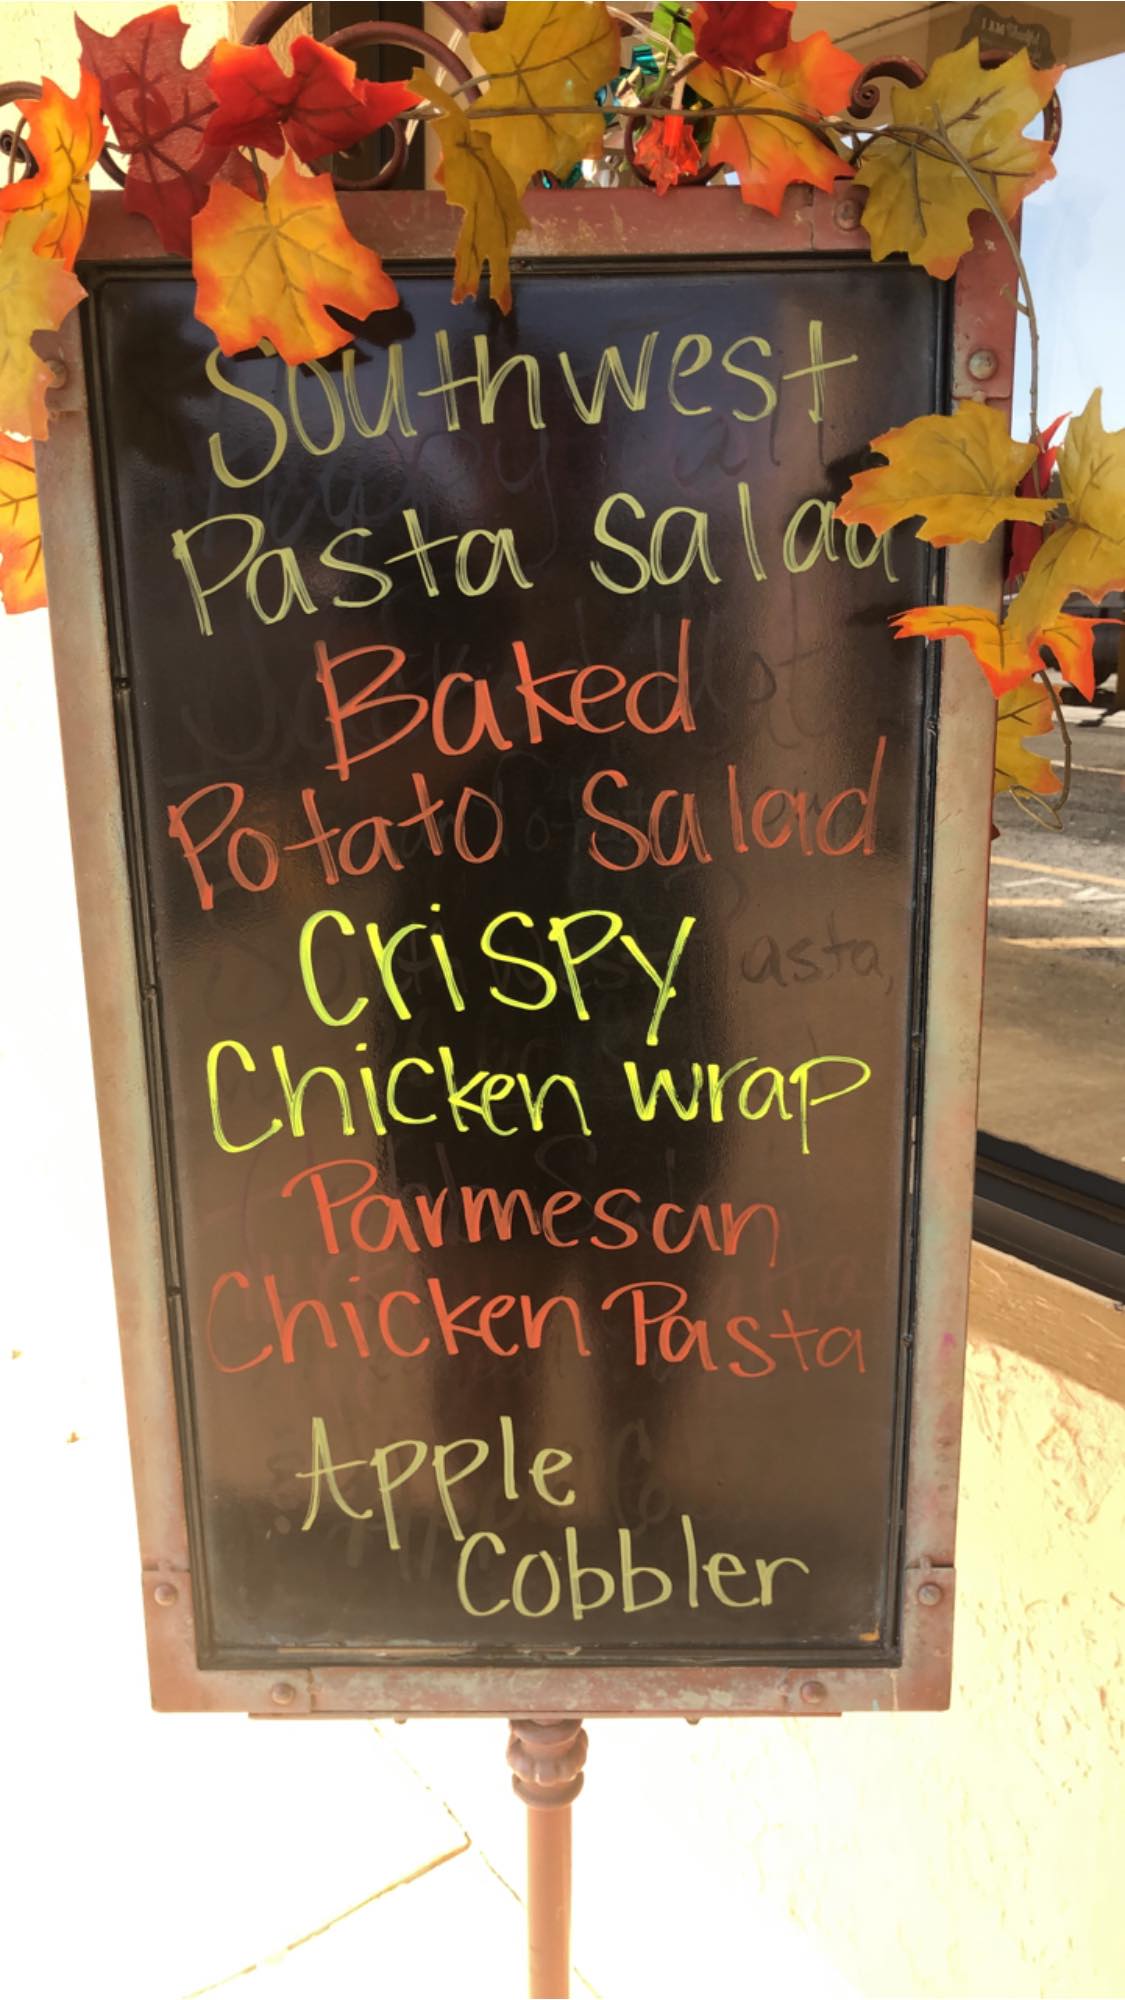 Southwest
Pasta Salad
Baked
Potato Salad
Crispy
Chicken wrap
Parmesan
Chicken Pasta
Apple
Cobbler